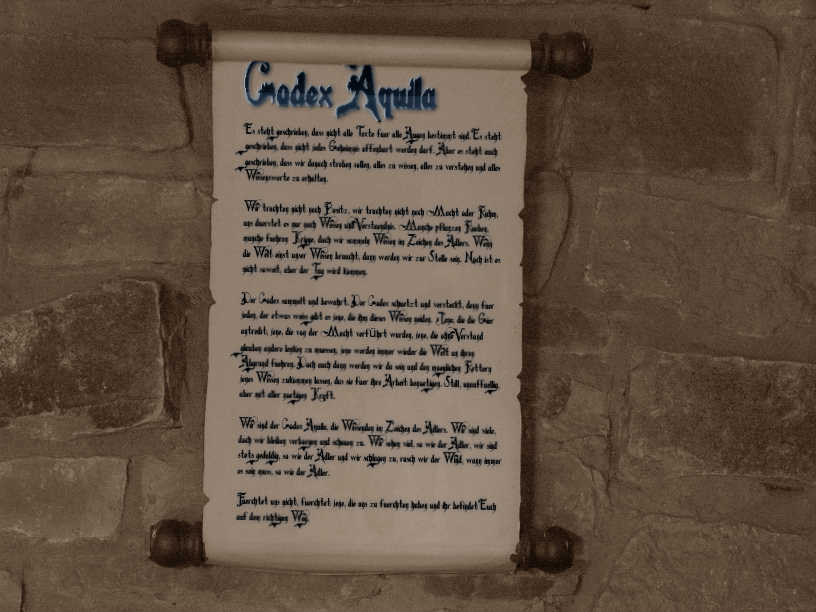 Codex Aquila
Es steht geschrieben, dass nicht alle Texte fuer alle Augen bestimmt sind. Es steht
geschrieben, dass nicht jedes Geheimnis offenbart werden darf. Aber es steht auch
geschrieben, dass wir danach streben sollen, alles zu wissen, alles zu verstehen und alles
Wissenswerte zu erhalten.
Wir trachten nicht nach Besitz, wir trachten nicht nach Macht oder Ruhm,
uns duerstet es nur nach Wissen und Verstaendnis. Manche pflanzen Fueben,
manche fuehren Kriege, doch wir sammeln Wissen im Zeichen des Adlers. Wenn
die Welt einst unser Wissen braucht, dann werden wir zur Stelle sein. Noch ist es
nicht soweit, aber der Tag wird kommen.
Der Codex sammelt und bewahrt. Der Codex schuetzt und versteckt, denn fuer
jeden, der etwas weiss gibt es jene, die ihm dieses Wissen neiden. Jene, die die Gier
antreibt, jene, die von der Macht verfÜhrt wurden, jene, die ohne Verstand
glauben andere leiten zu muessen, jene werden immer wieder die Welt an ihren
Abgrund fuehren. Doch auch dann werden wir da sein und den moeglichen Rettern
jenes Wissen zukommen lassen, das sie fuer ihre Arbeit benoetigen. Still, unauffaellig,
aber mit aller noetigen Kraft.
Wir sind der Codex Aquila, die Wissenden im Zeichen des Adlers. Wir sind viele,
doch wir bleiben verborgen und schauen zu. Wir sehen viel, so wie der Adler, wir sind
stets geduldig, so wie der Adler und wir schlagen zu, rasch wie der Wind, wann immer
es sein muss, so wie der Adler.
Fuerchtet uns nicht, fuerchtet jene, die uns zu fuerchten haben und ihr befindet Euch
auf dem richtigen Weg.